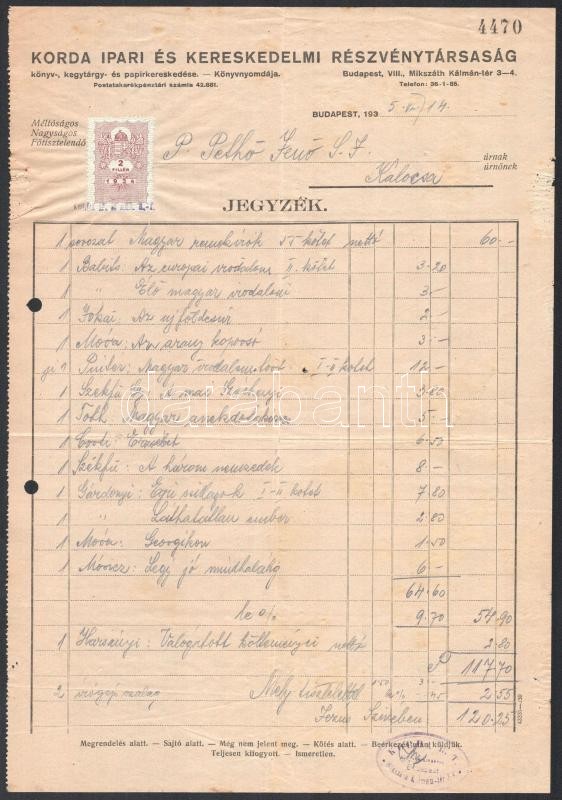 4470
KORDA IPARI ÉS KERESKEDELMI RÉSZVÉNYTÁRSASÁG
könyv-, kegytárgy- és papirkereskedése. — Könyvnyomdája. Budapest, VIII., Mikszáth Kálmán-tér 3—4.
Postatakarékpénztári számla 42.881. Telefon: 36-1-85.
BUDAPEST, 193 5. VI. 14.
Méltóságos
Nagyságos
Főtisztelendő
2
FILLÉR
P. Pethő Jenő S. J.
úrnak
úrnőnek
Kalocsa
JEGYZÉK.
1 sorozat Magyar remekírók 55 kötet nettó 60.—
1 Babits: Az europai irodalom II. kötet 3.20
1 " Élő magyar irodalom 3.—
1 Jókai: Az uj földesúr 2.—
1 Móra: Az arany koporsó 3.—
1 Pintér: Magyar irodalomtört. I-II kötet 12.—
1 Szekfű: A mai Széchenyi 3.80
1 Tóth Magyar anekdotakincs 5.—
1 Erzsébet 6.50
1 Szekfű: A három nemzedék 8.—
1 Gárdonyi: Egri csillagok I-II kötet 7.80
1 " Láthatatlan ember 2.80
1 Móra: Georgikon 1.50
1 Móricz: Légy jó mindhalálig 6.—
64.60
9.70 54.90
1 Harsányi: Válogatott költeményei nettó 2.80
P 117.70
2 szalag 1.50 3.— 2.55
Mély tisztelettel
Jézus Szívében 120.25
Megrendelés alatt. — Sajtó alatt. — Még nem jelent meg. — Kötés alatt. — Beérkezés után küldjük.
Teljesen kifogyott. — Ismeretlen.
darabanth